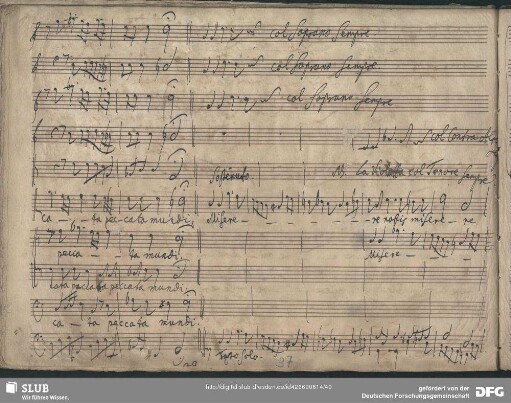 col Soprano Sempre
col Soprano Sempre
col Soprano Sempre
col Contralto
Sostenuto
La Violetta col Tenore Sempre
ca - ta peccata mundi, Misere - - - - re nobis misere - re
pecca - - ta mundi, Misere - -
cata peccata peccata mundi
ca - ta peccata mundi
Tasto Solo
37
SLUB
Wir führen Wissen.
gefördert von der
Deutschen Forschungsgemeinschaft
DFG